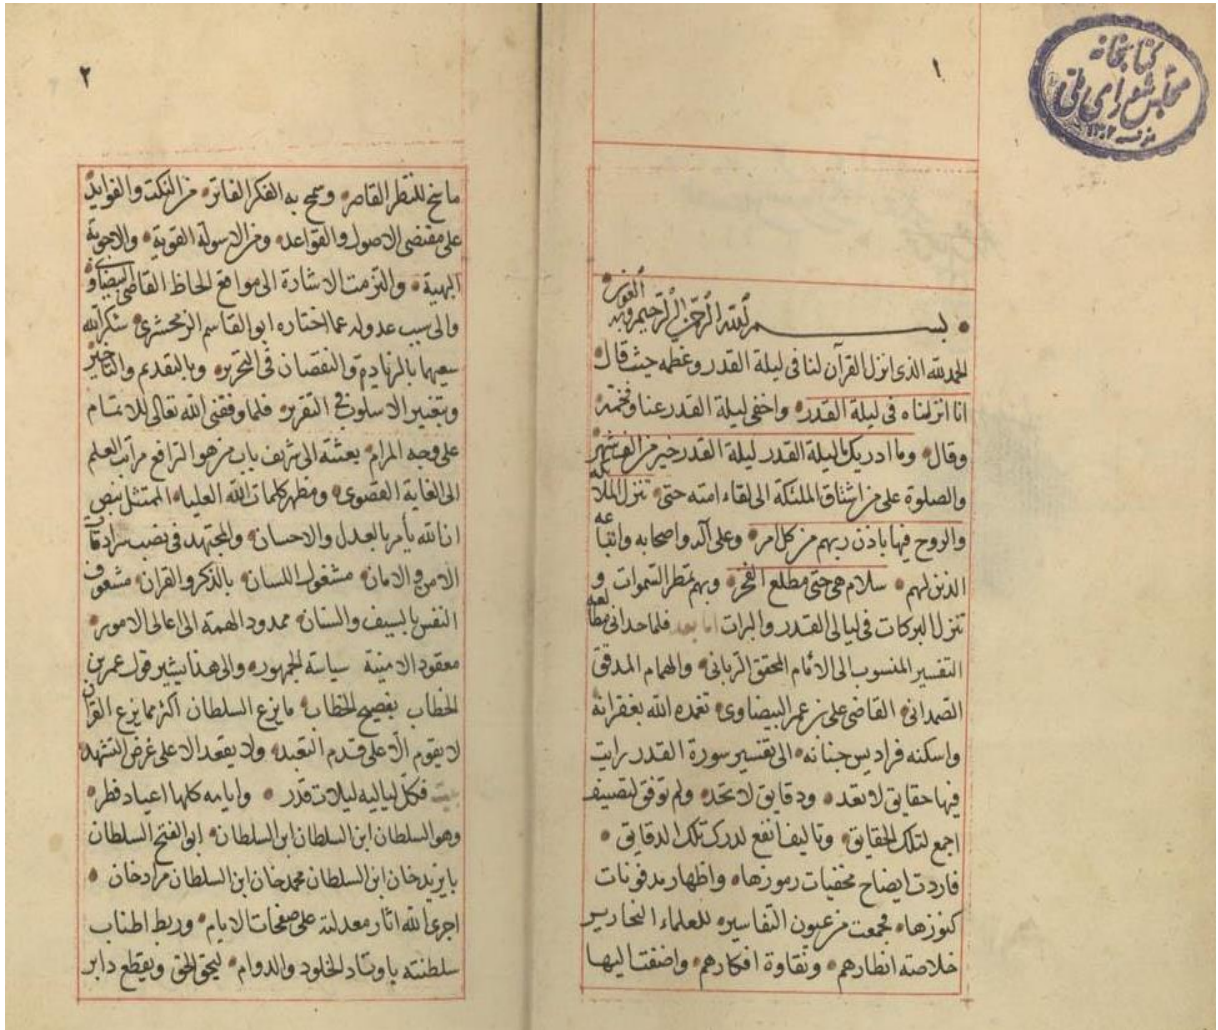 ١
كتابخانه
مجلس شورای ملی
١٣٠٢
بسم الله الرحمن الرحيم وبه العون
الحمد لله الذی انزل القرآن لنا فی ليلة القدر وعظمه حيث قال
انا انزلناه فی ليلة القدر واخفی ليلة القدر عنا وفخمه
وقال وما ادريك ما ليلة القدر ليلة القدر خير من الف شهر
والصلوة علی من اشتاق الملئكة الی لقاء امته حتی تنزل الملائكة
والروح فيها باذن ربهم من كل امر وعلی آله واصحابه واتباعه
الذين لهم سلام هی حتی مطلع الفجر وبهم تمطر السموات و
تنزل البركات فی ليالی القدر والبرات اما بعد فلما حدانی مطالعة
التفسير المنسوب الی الامام المحقق الربانی والهمام المدقق
الصمدانی القاضی علی بن عمر البيضاوی تغمده الله بغفرانه
واسكنه فراديس جنانه الی تفسير سورة القدر رايت
فيها حقايق لا تعد ودقايق لا تحد ولم توفق لتصنيف
اجمع لتلك الحقايق وتاليف انفع لدرك تلك الدقايق
فاردت ايضاح مخفيات رموزها واظهار مدفونات
كنوزها فجمعت من عيون التفاسير للعلماء النحارير
خلاصته انظارهم ونقاوة افكارهم واضفت اليها
٢
ما سنح للنظر القاصر وسمح به الفكر الفاتر من النكت والفوايد
علی مقتضی الاصول والقواعد ومن الاسولة القوية والاجوبة
البهية والتزمت الاشارة الی مواقع الحاظ القاضی البيضاوی
والی سبب عدوله عما اختاره ابو القاسم الزمخشری شكر الله
سعيهما بالزيادة والنقصان فی التحرير وبالتقديم والتاخير
وبتغيير الاسلوب فی التقرير فلما وفقنی الله تعالی للاتمام
علی وجه المرام بعثته الی شريف باب من هو الترافع مراتب العلم
الی الغاية القصوی ومظهر كلمات الله العليا الممتثل بنص
ان الله يأمر بالعدل والاحسان والمجتهد فی نصب سرادقات
الامن والامان مشغول اللسان بالذكر والقران مشغوف
النفس بالسيف والسنان ممدود الهمة الی اعالی الامور
معقود الامنية سياسة الجمهور والی هذا يشير قول عمر بن
الخطاب بفصيح الخطاب ما يزع السلطان اكثر مما يزع القران
لا يقوم الا علی قدم التعبد ولا يقعد الا علی غرض التشهد
بيت فكل لياليه ليلات قدر وايامه كلها اعياد فطر
وهو السلطان ابن السلطان ابن السلطان ابو الفتح السلطان
بايزيد خان ابن السلطان محمد خان ابن السلطان مراد خان
اجری الله اثار معدلته علی صفحات الايام وربط اطناب
سلطنته باوتاد الخلود والدوام ليحق الحق ويقطع دابر